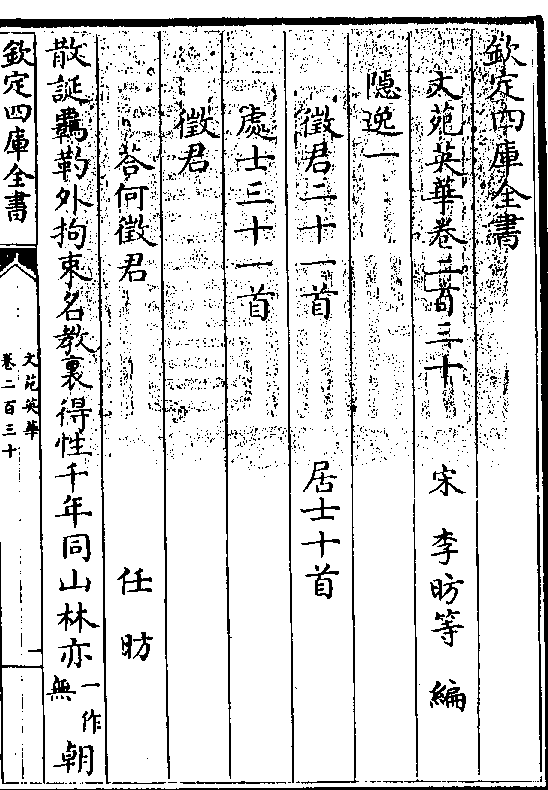 欽定四庫全書
文苑英華卷二百三十 宋 李昉等 編
隱逸一
徵君二十一首 居士十首
處士三十一首
徵君
荅何徵君 任昉
散誕羈靮外拘束名教裏得性千年同山林亦一作無朝
欽定四庫全書
文苑英華
卷二百三十
一